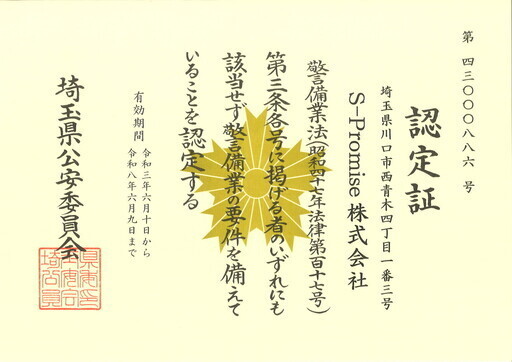 第 四三〇〇〇八八六 号
認定証
埼玉県川口市西青木四丁目一番三号
S-Promise 株式会社
警備業法(昭和四十七年法律第百十七号)
第三条各号に掲げる者のいずれにも
該当せず警備業の要件を備えて
いることを認定する
有効期間 令和三年六月十日から
令和八年六月九日まで
埼玉県公安委員会